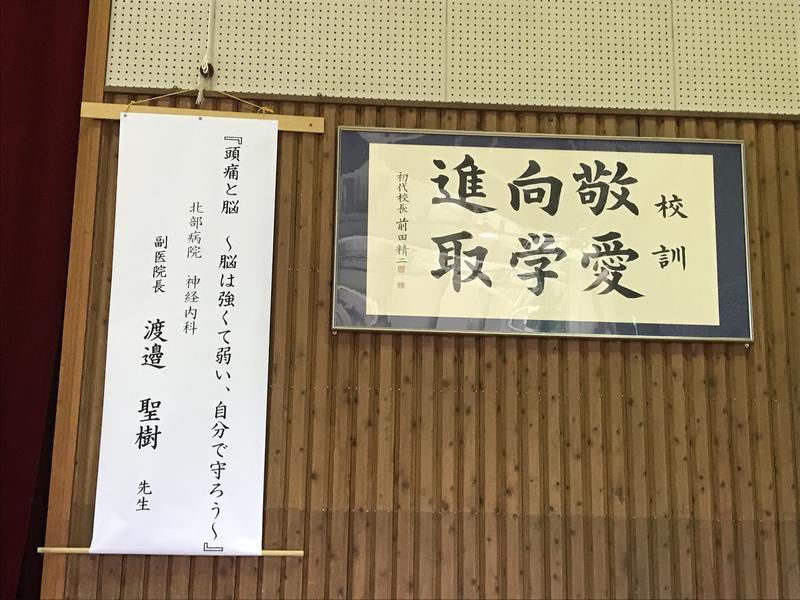 『頭痛と脳　～脳は強くて弱い、自分で守ろう～』
北部病院　神経内科
副医院長　渡邉　聖樹　先生
校訓
敬愛
向学
進取
初代校長 前田精二